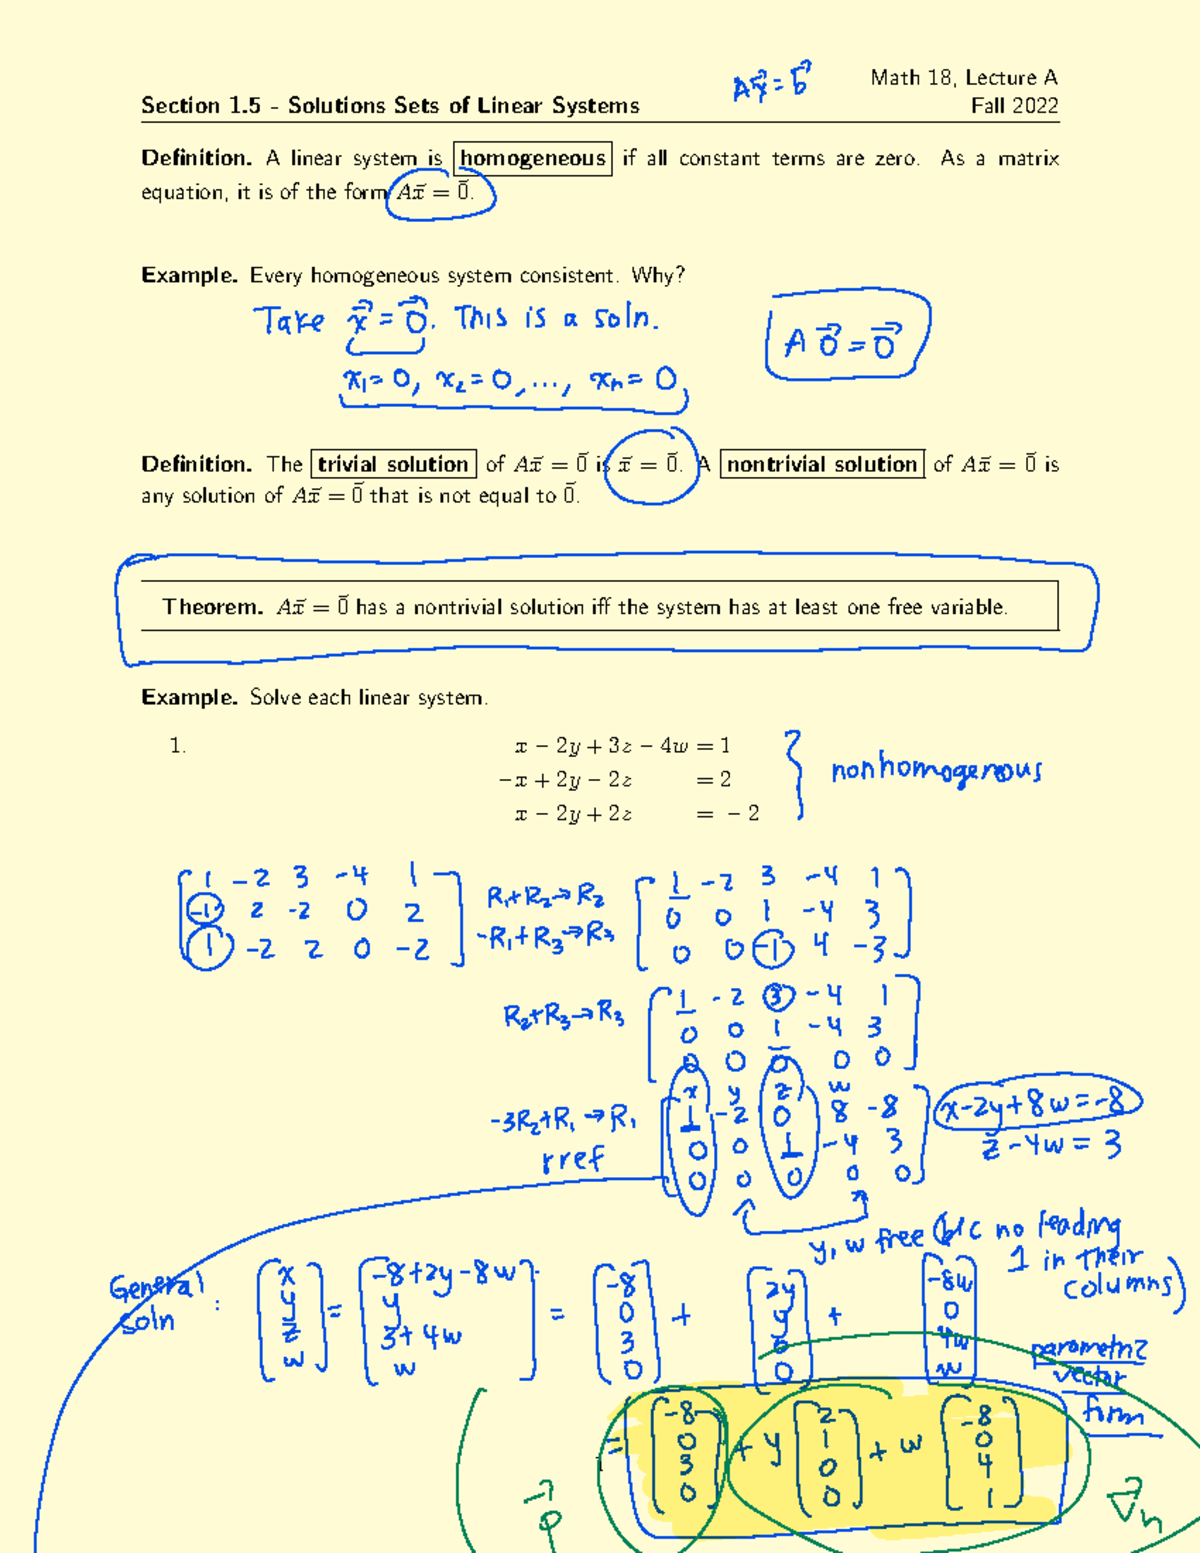 Ax⃗ = b⃗
Math 18, Lecture A
Section 1.5 - Solutions Sets of Linear Systems
Fall 2022
Definition. A linear system is homogeneous if all constant terms are zero. As a matrix
equation, it is of the form Ax⃗ = 0⃗.
Example. Every homogeneous system consistent. Why?
Take x⃗ = 0⃗. This is a soln.
A0⃗ = 0⃗
x₁ = 0, x₂ = 0, ..., xₙ = 0,
Definition. The trivial solution of Ax⃗ = 0⃗ is x⃗ = 0⃗. A nontrivial solution of Ax⃗ = 0⃗ is
any solution of Ax⃗ = 0⃗ that is not equal to 0⃗.
Theorem. Ax⃗ = 0⃗ has a nontrivial solution iff the system has at least one free variable.
Example. Solve each linear system.
1.
x − 2y + 3z − 4w = 1
−x + 2y − 2z = 2
x − 2y + 2z = − 2
nonhomogenous
1 -2 3 -4 1
-1 2 -2 0 2
1 -2 2 0 -2
R₁+R₂→R₂
-R₁+R₃→R₃
1 -2 3 -4 1
0 0 1 -4 3
0 0 -1 4 -3
R₂+R₃→R₃
1 -2 3 -4 1
0 0 1 -4 3
0 0 0 0 0
-3R₂+R₁→R₁
rref
x y z w
1 -2 0 8 -8
0 0 1 -4 3
0 0 0 0 0
x-2y+8w=-8
z-4w=3
y, w free (b/c no leading
1 in their
columns)
General
soln :
x
y
z
w
=
-8+2y-8w
y
3+4w
w
=
-8
0
3
0
+
2y
y
0
0
+
-8w
0
4w
w
parametric
vector
form
=
-8
0
3
0
+ y
2
1
0
0
+ w
-8
0
4
1
p⃗
v⃗ₕ